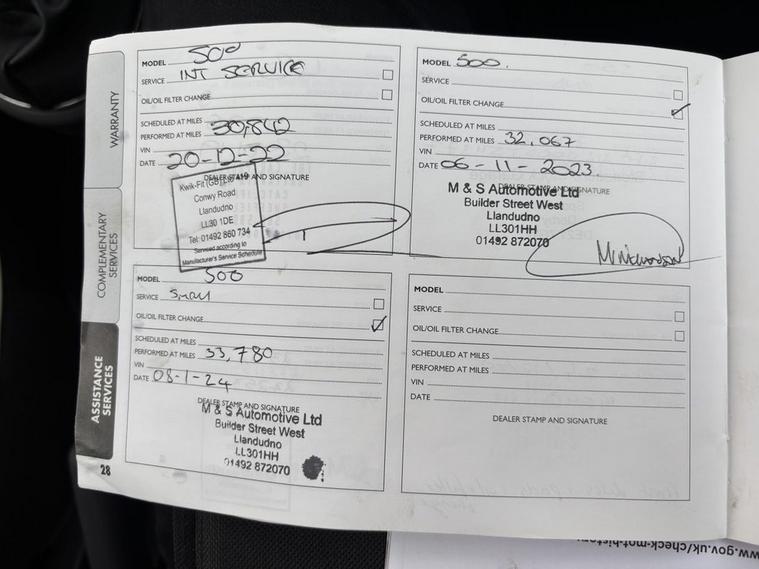 WARRANTY
COMPLEMENTARY
SERVICES
ASSISTANCE
SERVICES
28
MODEL 500
SERVICE INT SERVICE
OIL/OIL FILTER CHANGE
SCHEDULED AT MILES
PERFORMED AT MILES 30,842
VIN
DATE 20-12-22
DEALER STAMP AND SIGNATURE
Kwik-Fit (GB) Ltd
Conwy Road
Llandudno
LL30 1DE
Tel: 01492 860 734
Serviced according to
Manufacturer's Service Schedule
MODEL 500.
SERVICE
OIL/OIL FILTER CHANGE
SCHEDULED AT MILES
PERFORMED AT MILES 32,067
VIN
DATE 06-11-2023.
DEALER STAMP AND SIGNATURE
M & S Automotive Ltd
Builder Street West
Llandudno
LL301HH
01492 872070
MODEL 500
SERVICE Small
OIL/OIL FILTER CHANGE
SCHEDULED AT MILES
PERFORMED AT MILES 33,780
VIN
DATE 08-1-24
DEALER STAMP AND SIGNATURE
M & S Automotive Ltd
Builder Street West
Llandudno
LL301HH
01492 872070
MODEL
SERVICE
OIL/OIL FILTER CHANGE
SCHEDULED AT MILES
PERFORMED AT MILES
VIN
DATE
DEALER STAMP AND SIGNATURE
ww.gov.uk/check-mot-history